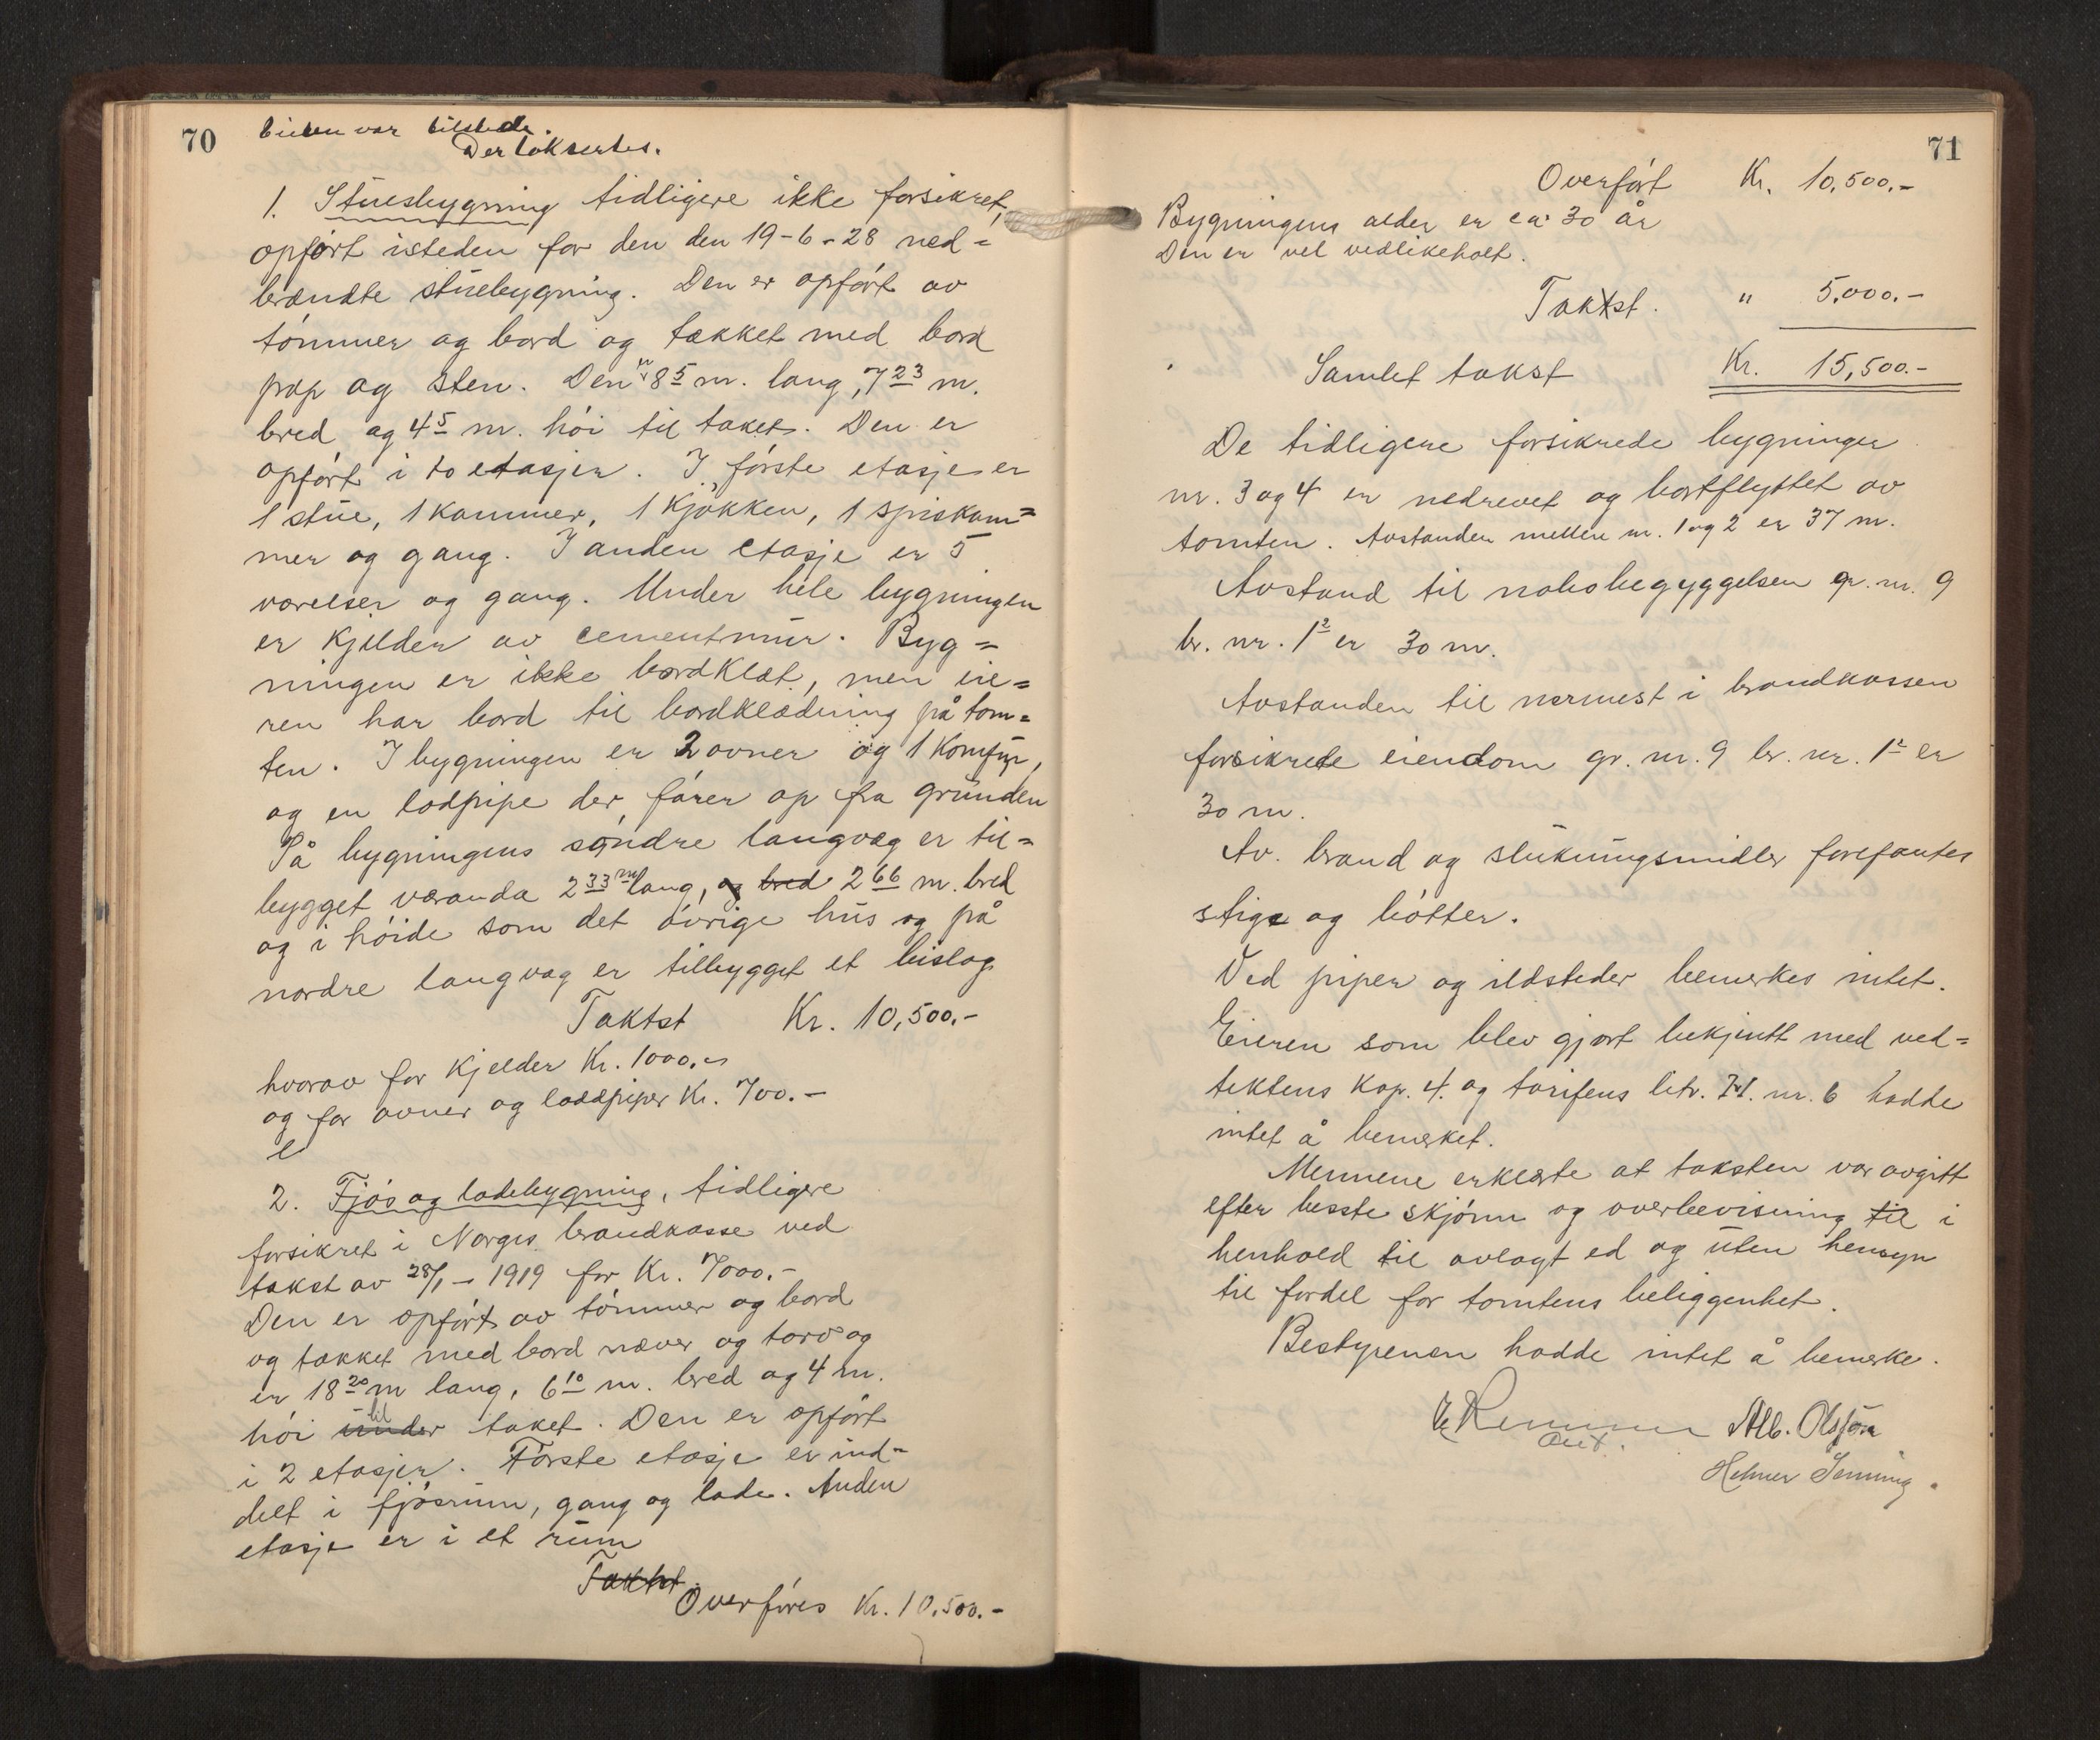 70
Eieren var tilstede.
Der taksertes.
1. Stuesbygning tidligere ikke forsikret,
opført isteden for den den 19-6-28 ned=
brændte stuebygning. Den er opført av
tømmer og bord og tækket med bord
pap og sten. Den er 8 5 m. lang, 7 23 m.
bred og 4 5 m. høi til taket. Den er
opført i to etasjer. I første etasje er
1 stue, 1 kammer, 1 kjøkken, 1 spiskam=
mer og gang. I anden etasje er 5
værelser og gang. Under hele bygningen
er kjelder av cementmur. Byg=
ningen er ikke bordklæt, men eie=
ren har bord til bordklædning på tom=
ten. I bygningen er 2 ovner og 1 komfyr,
og en lodpipe der fører op fra grunden
På bygningens søndre langvæg er til=
bygget væranda 2 33 m lang, og bred 2 66 m. bred
og i høide som det øvrige hus og på
nordre langvæg er tilbygget et bislag
Taktst Kr. 10,500.-
hvorav for kjelder Kr. 1000.-
og for ovner og loddpiper Kr. 700.-
2. Fjøs og ladebygning, tidligere
forsikret i Norges brandkasse ved
takst av 28/1 - 1919 for Kr. 7000.-
Den er opført av tømmer og bord
og tækket med bord næver og torv og
er 18 20 m lang, 6 10 m. bred og 4 m.
høi under til taket. Den er opført
i 2 etasjer. Første etasje er ind=
delt i fjøsrum, gang og lade. Anden
etasje er i et rum
Taktst
Overføres Kr. 10.500.-
71
Overført Kr. 10,500.-
Bygningens alder er ca: 30 år
Den er vel vedlikeholt.
Taktst. " 5.000.-
Samlet takst Kr. 15,500.-
De tidligere forsikrede bygninger
nr. 3 og 4 er nedrevet og bortflyttet av
tomten. Avstanden mellem nr. 1 og 2 er 37 m.
Avstand til nabobegyggelsen gr. nr. 9
br. nr. 1 2 er 30 m.
Avstanden til nærmest i brandkassen
forsikrede eiendom gr. nr. 9 br. nr. 1 2 er
30 m.
Av. brand og slukningsmidler forefantes
stige og bøtter.
Ved piper og ildsteder bemerkes intet.
Eieren som blev gjort bekjentt med ved=
tektens kap. 4. og tarifens litr. nr. 6 hadde
intet å bemerket.
Mennene erklærte at taksten var avgitt
efter besste skjønn og overbevisning til i
henhold til avlagt ed og uten hensyn
til fordel for tomtens beliggenhet.
Bestyreren hadde intet å bemerke.
Alb. Olsson
Helmer